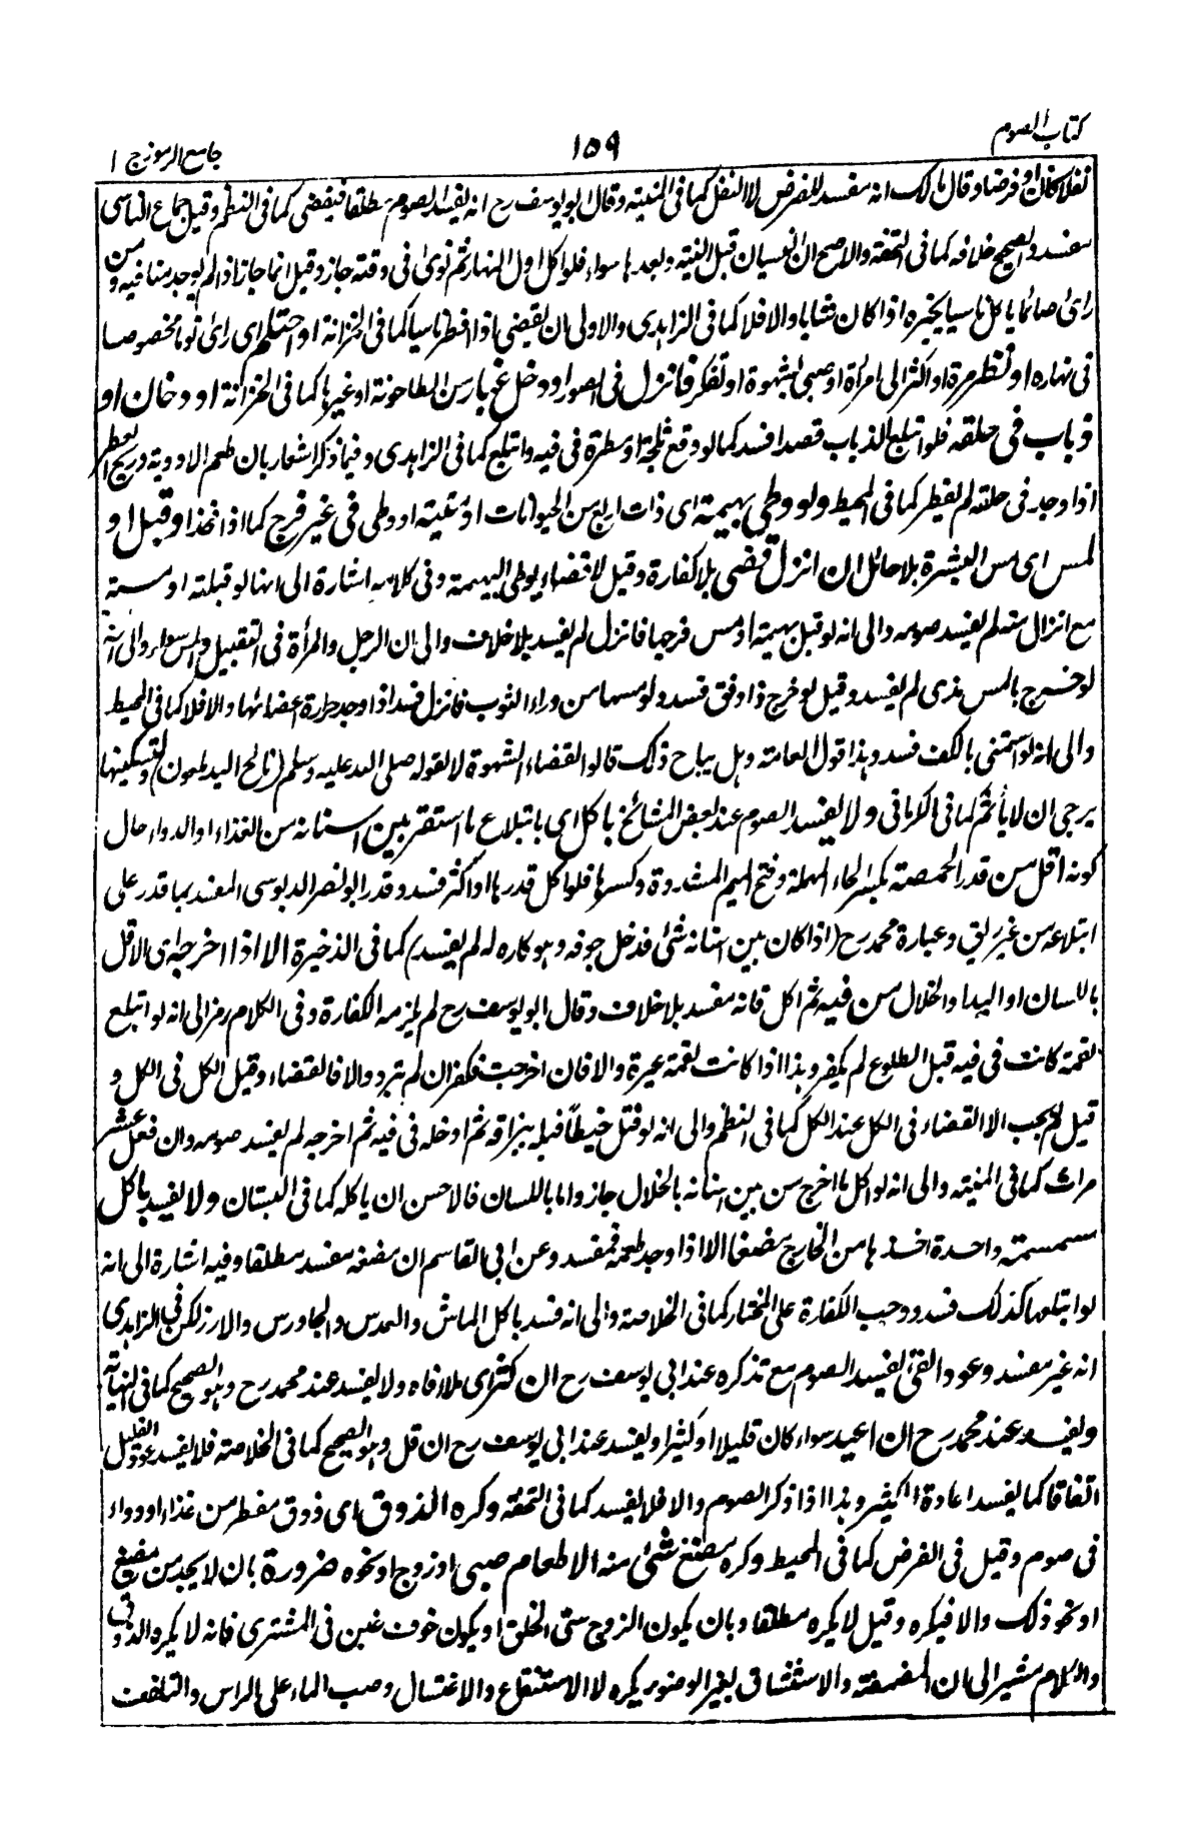 كتاب الصوم
١٥٩
جامع الرموز ج ١
نفلا كان او فرضا وقال مالك انه مفسد للفرض لا النفل كما فى المنية وقال ابو يوسف رح انه يفسد الصوم مطلقا فيقضى كما فى النظم وقيل جماع الناسى
مفسد والصحيح خلافه كما فى التحفة والاصح ان النسيان قبل النية وبعدها سواء فلو اكل اول النهار ثم نوى فى وقته جاز وقيل انما جاز اذا لم يوجد منافيه ومن
رأى صائما ياكل ناسيا يخبره اذا كان شابا والا فلا كما فى الزاهدى والاولى ان يقضى اذا افطر ناسيا كما فى الخزانة او احتلم اى رأى نوما مخصوصا
فى نهاره او نظر مرة او اكثر الى امرأة او صبى بشهوة او تفكر فانزل فى الصور او دخل غبار من الطاحونة او غيرها كما فى الخزانة او دخان او
ذباب فى حلقه فلو ابتلع الذباب قصدا فسد كما لو وقع ثلجة او مطرة فى فيه وابتلع كما فى الزاهدى وفيما ذكر اشعار بان طعم الادوية وريح العطر
اذا وجد فى حلقه لم يفطر كما فى المحيط ولو وطى بهيمة اى ذات اربع من الحيوانات او ميتة او وطى فى غير فرج كما اذا فخذ او قبل او
لمس اى مس البشرة بلا حائل ان انزل قضى بلا كفارة وقيل لا قضاء بوطى البهيمة وفى كلامه اشارة الى انها لو قبلته او مسته
مع انزال منه لم يفسد صومه والى انه لو قبل بهيمة او مس فرجها فانزل لم يفسد بلا خلاف والى ان الرجل والمرأة فى التقبيل والمس سواء والى انه
لو خرج بالمس مذى لم يفسد وقيل لو خرج ذا وفق فسد ولو مسها من وراء الثوب فانزل فسد اذا وجد حرارة اعضائها والا فلا كما فى المحيط
والى انه لو استمنى بالكف فسد وهذا قول العامة وهل يباح ذلك قالوا لقضاء الشهوة لا لقوله صلى الله عليه وسلم (ناكح اليد ملعون) ولتسكينها
يرجى ان لا يأثم كما فى الكرمانى ولا يفسد الصوم عند بعض المشائخ باكل اى بابتلاع ما استقر بين اسنانه من الغذاء او الدواء حال
كونه اقل من قدر الحمصة بكسر الحاء المهملة وفتح الميم المشددة وكسرها فلو اكل قدرها او اكثر فسد وقدر ابو نصر الدبوسى المفسد بما قدر على
ابتلاعه من غير ريق وعبارة محمد رح (اذا كان بين اسنانه شئ فدخل جوفه وهو كاره له لم يفسد) كما فى الذخيرة الا اذا اخرجه اى الاقل
باللسان او اليد او الخلال من فيه ثم اكل فانه مفسد بلا خلاف وقال ابو يوسف رح لم يلزمه الكفارة وفى الكلام رمز الى انه لو ابتلع
لقمة كانت فى فيه قبل الطلوع لم يكفر وهذا اذا كانت لقمة غيره والا فان اخرجت فكفر ان لم تبرد والا فالقضاء وقيل الكل فى الكل و
قيل لم يجب الا القضاء فى الكل عند الكل كما فى النظم والى انه لو فتل خيطا فبله ببزاقه ثم ادخله فى فيه ثم اخرجه لم يفسد صومه وان فعل عشر
مرات كما فى المنية والى انه لو اكل ما اخرج من بين اسنانه بالخلال جاز واما باللسان فالاحسن ان ياكله كما فى البستان ولا يفسد باكل
سمسمة واحدة اخذها من الخارج مضغا الا اذا وجد طعمه فمفسد وعن ابى القاسم ان مضغه مفسد مطلقا وفيه اشارة الى انه
لو ابتلعها كذلك فسد ووجب الكفارة على المختار كما فى الخلاصة والى انه فسد باكل الماش والعدس والجاورس والارز لكن فى الزاهدى
انه غير مفسد وعود القئ يفسد الصوم مع تذكره عند ابى يوسف رح ان كثر اى ملأ فاه ولا يفسد عند محمد رح وهو الصحيح كما فى النهاية
ويفسد عند محمد رح ان اعيد سواء كان قليلا او كثيرا ويفسد عند ابى يوسف رح ان قل وهو الصحيح كما فى الخلاصة فلا يفسد عود القليل
اتفاقا كما يفسد اعادة الكثير وهذا اذا ذكر الصوم والا فلا يفسد كما فى التحفة وكره الذوق اى ذوق مفطر من غذاء او دواء
فى صوم وقيل فى الفرض كما فى المحيط وكره مضغ شئ منه الا طعام صبى او زوج او نحوه ضرورة بان لا يجد من مضغ
او نحو ذلك والا فيكره وقيل لا يكره مطلقا وبان يكون الزوج سئ الخلق او يكون خوف غبن فى المشترى فانه لا يكره الذوق
والكلام مشير الى ان المضمضة والاستنشاق بغير الوضوء يكره لا الاستنقاع والاغتسال وصب الماء على الراس والتلفف